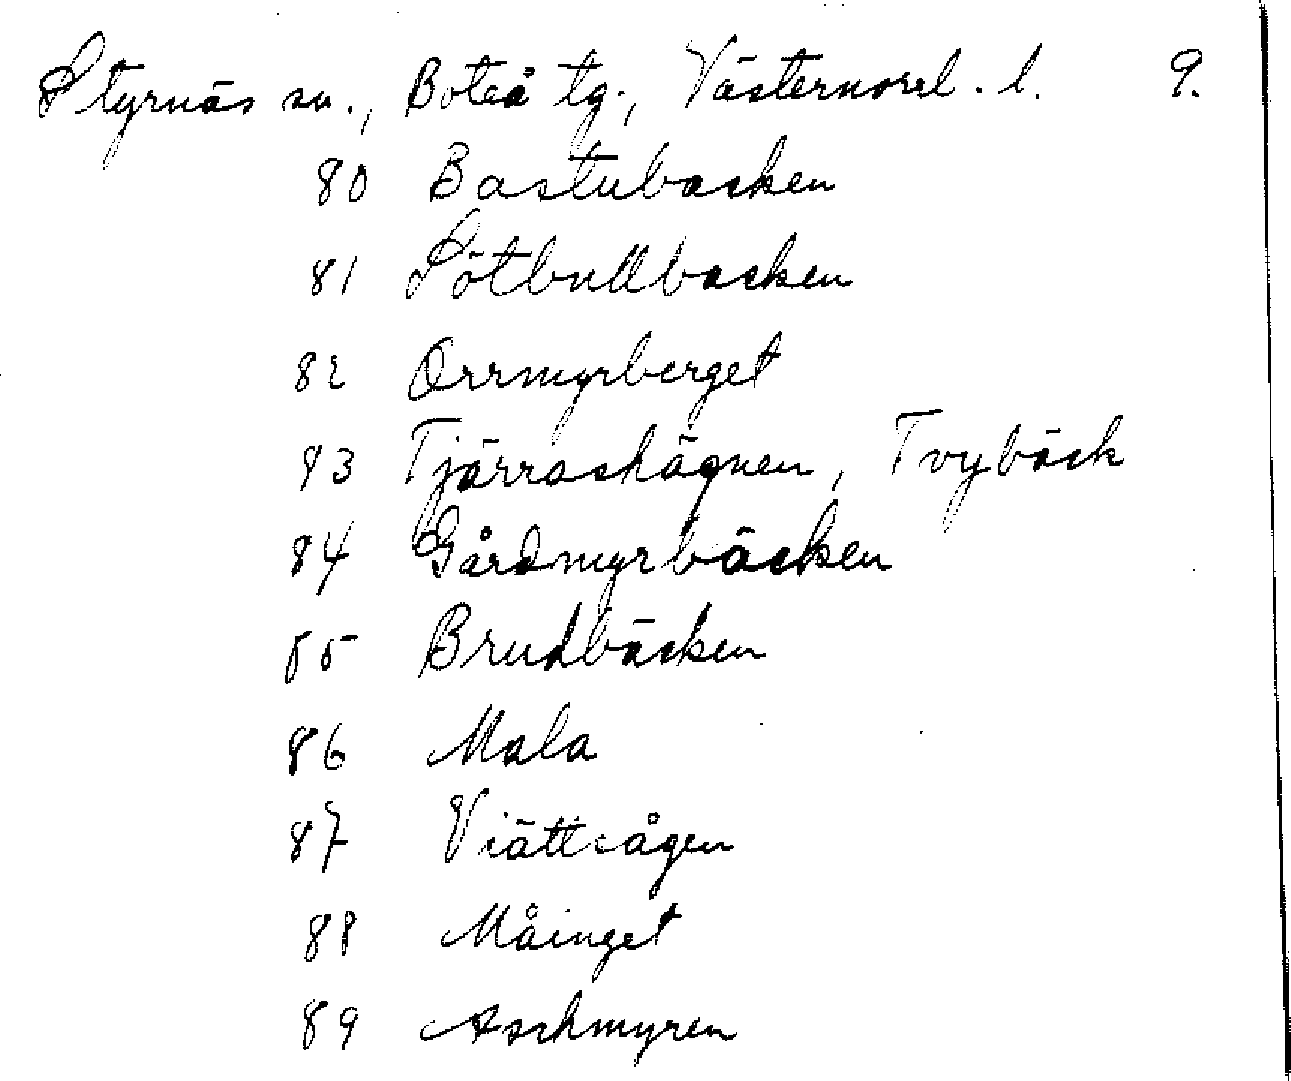 Styrnäs sn., Boteå tg., Västernorrl. l. 9.
80 Bastubacken
81 Sötbullbacken
82 Orrmyrberget
83 Tjärraskägnen, Tvybäck
84 Gårdmyrbäcken
85 Brudbäcken
86 Mala
87
88 Måinget
89 Askmyren